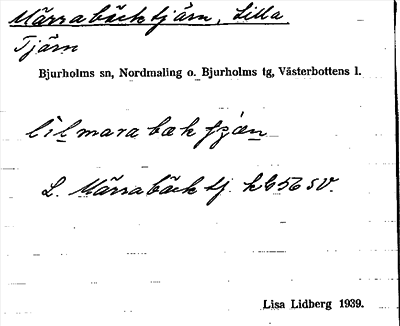 Märrabäcktjärn, Lilla
Tjärn
Bjurholms sn, Nordmaling o. Bjurholms tg, Västerbottens l.
L. Märrabäck tj. k656 SV.
Lisa Lidberg 1939.